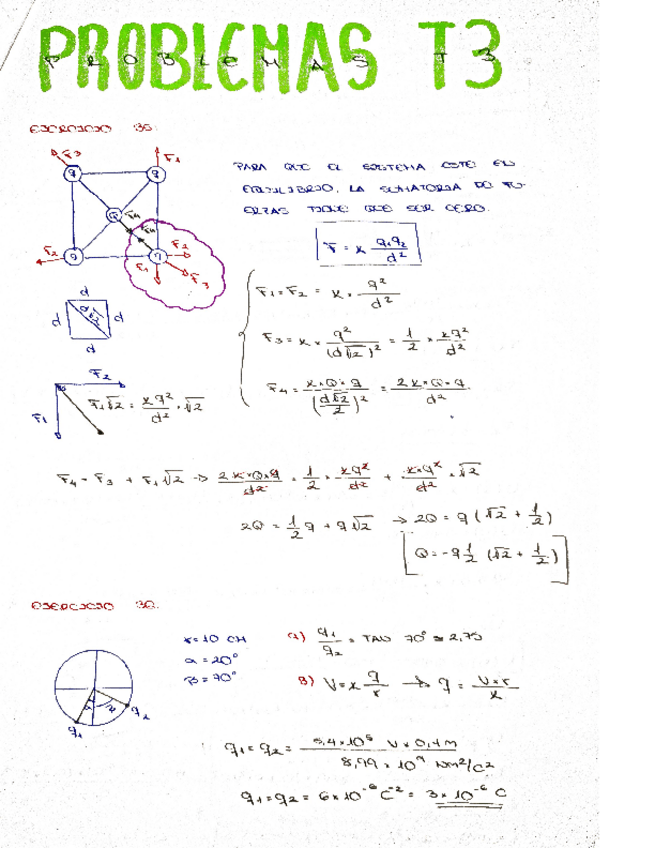 PROBLEMAS T3
PROBLEMAS T3
EJERCICIO 30:
F3
F1
q
q
Q
F4
F4
F2
q
q
F2
F1
F3
PARA QUE EL SISTEMA ESTÉ EN
EQUILIBRIO, LA SUMATORIA DE FU-
ERZAS TIENE QUE SER CERO.
F = K q1 q2 / d²
d
d
d
d
d√2
F1 = F2 = K × q² / d²
F3 = K × q² / (d√2)² = 1/2 × Kq² / d²
F4 = K×Q×q / (d√2/2)² = 2K×Q×q / d²
F2
F1
F1√2 = Kq² / d² · √2
F4 = F3 + F1√2 → 2K×Q×q / d² = 1/2 × Kq² / d² + K×q² / d² × √2
2Q = 1/2 q + q√2 → 2Q = q (√2 + 1/2)
Q = -q 1/2 (√2 + 1/2)
r = 10 CM
α = 20°
β = 70°
q1
q2
A) q1 / q2 = TAN 70° ≈ 2,75
B) V = K q / r → q = V×r / K
q1 = q2 = 5,4×10⁵ V × 0,1m / 8,99 × 10⁹ Nm²/C²
q1 = q2 = 6×10⁻⁶ C⁻² = 3×10⁻⁶ C